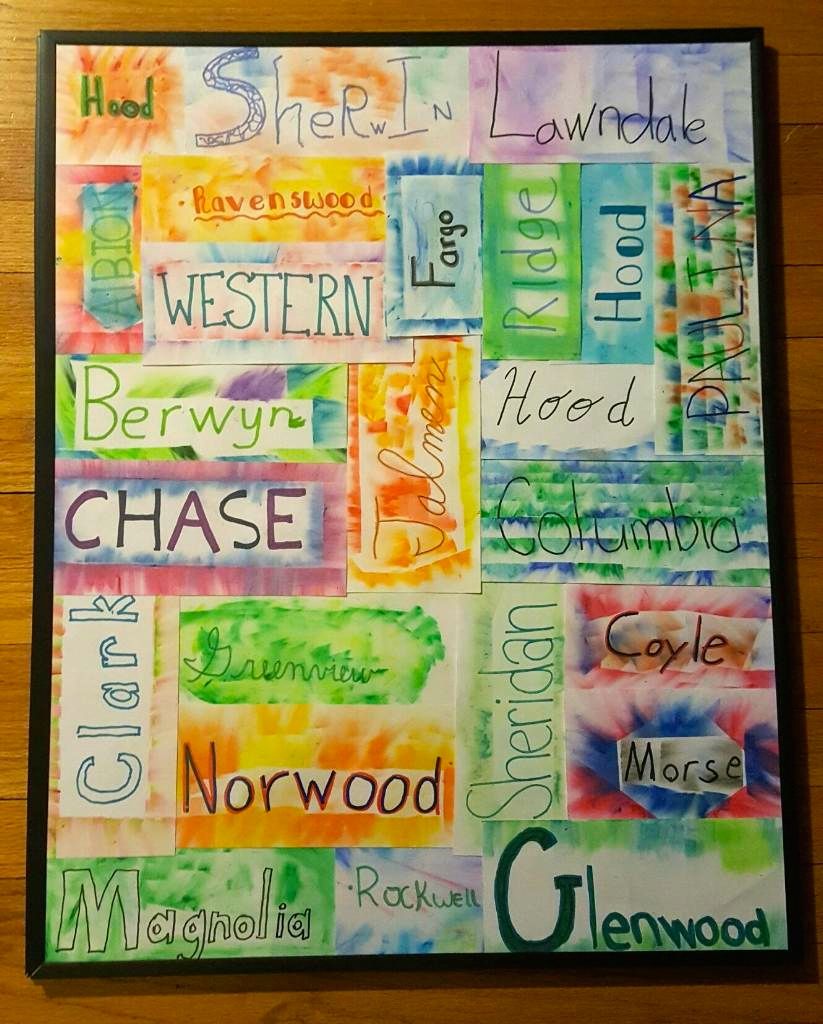 Hood
SherwIN
Lawndale
ALBION
Ravenswood
Fargo
RIdge
Hood
PAULINA
WESTERN
Berwyn
Talmen
Hood
CHASE
Columbia
Clark
Greenview
Sheridan
Coyle
Norwood
Morse
Magnolia
Rockwell
Glenwood